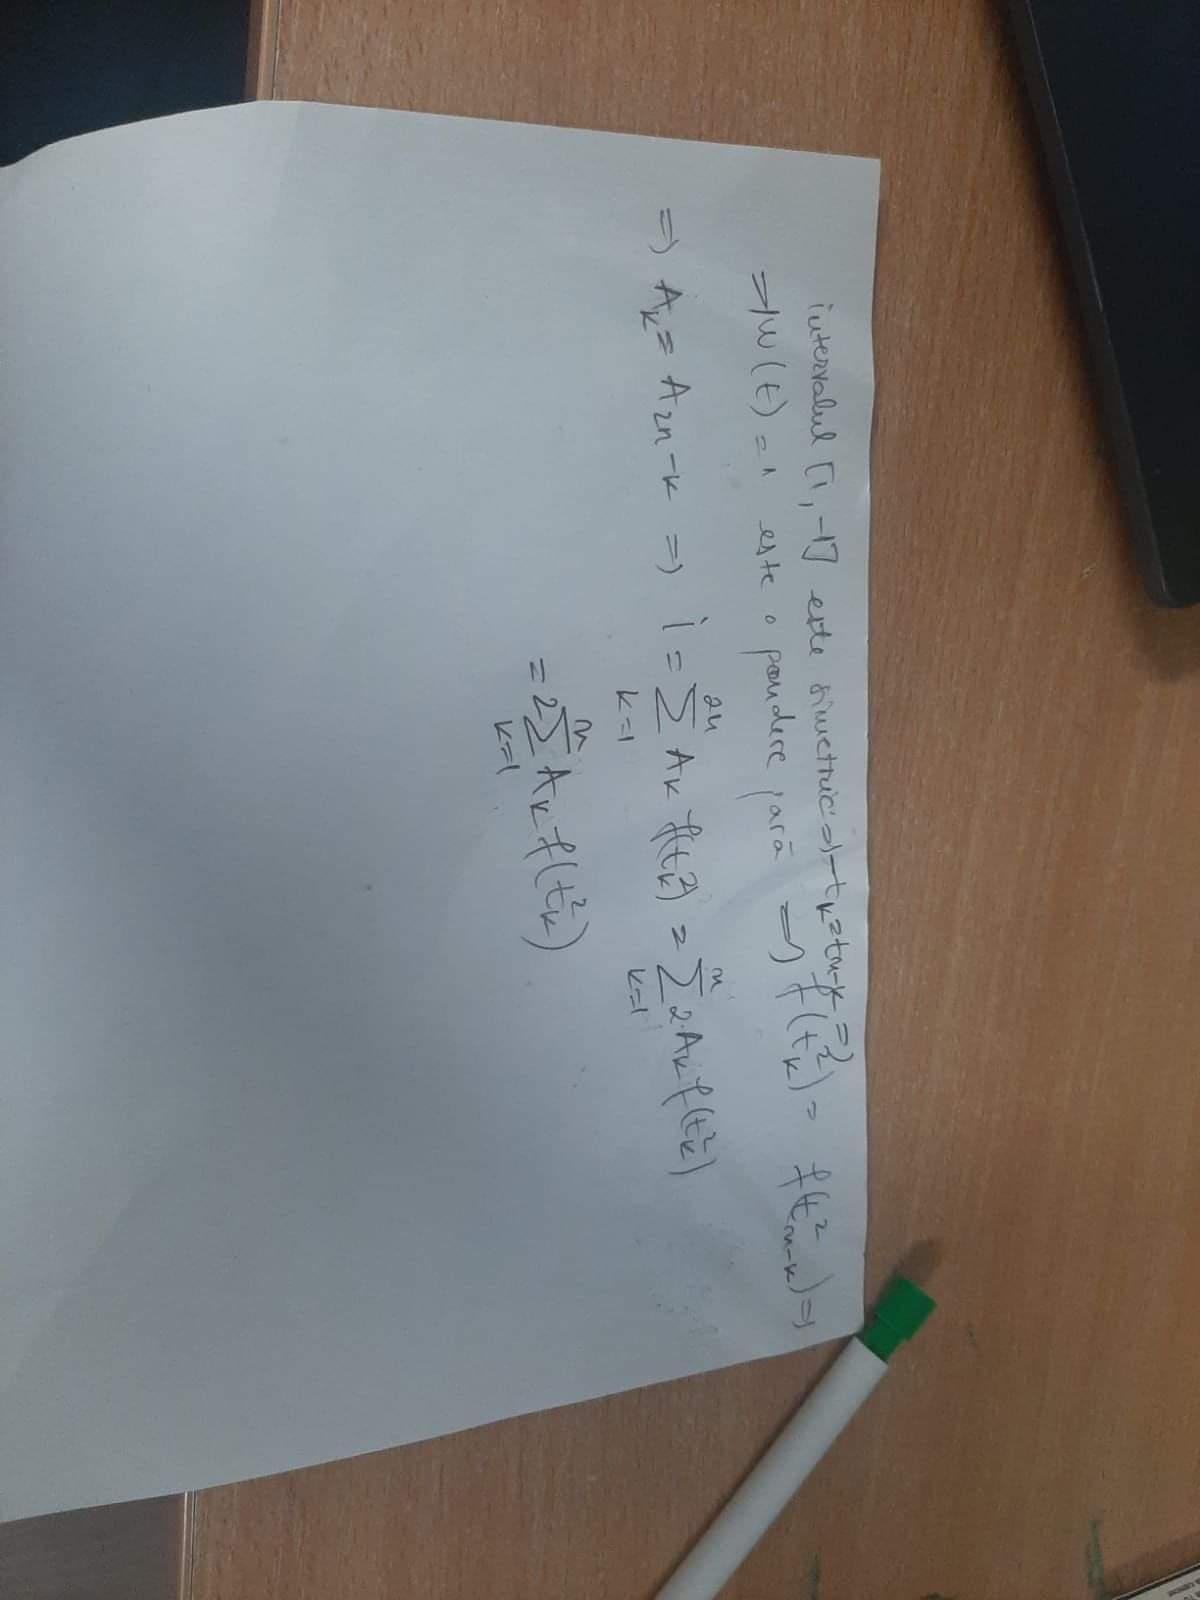 intervalul [1, -1] este simetric => -t_k = t_{n-k} =>
=> w(t) = 1 este o pondere pară => f(t_k^2) = f(t_{n-k}^2) =>
=> A_k = A_{2n-k} => i = \sum_{k=1}^{2n} A_k f(t_k^2) = \sum_{k=1}^{n} 2 A_k f(t_k^2)
= 2 \sum_{k=1}^{n} A_k f(t_k^2)